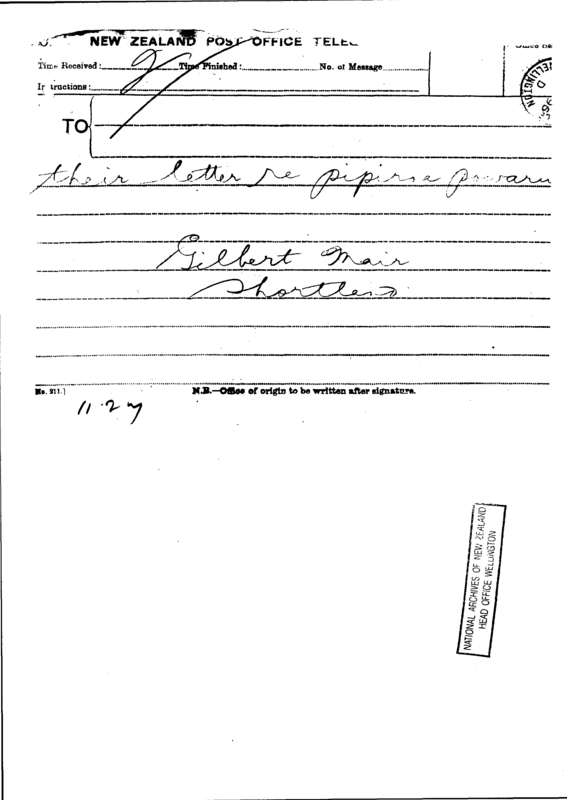 NEW ZEALAND POST OFFICE TELE
Time Received: Time Finished: No. of Message
In tructions:
WELLINGTON
TO
their letter re pipirne
Gilbert Mair
Shortland
No. 911.]
N.B.—Office of origin to be written after signature.
11.2
NATIONAL ARCHIVES OF NEW ZEALAND
HEAD OFFICE WELLINGTON